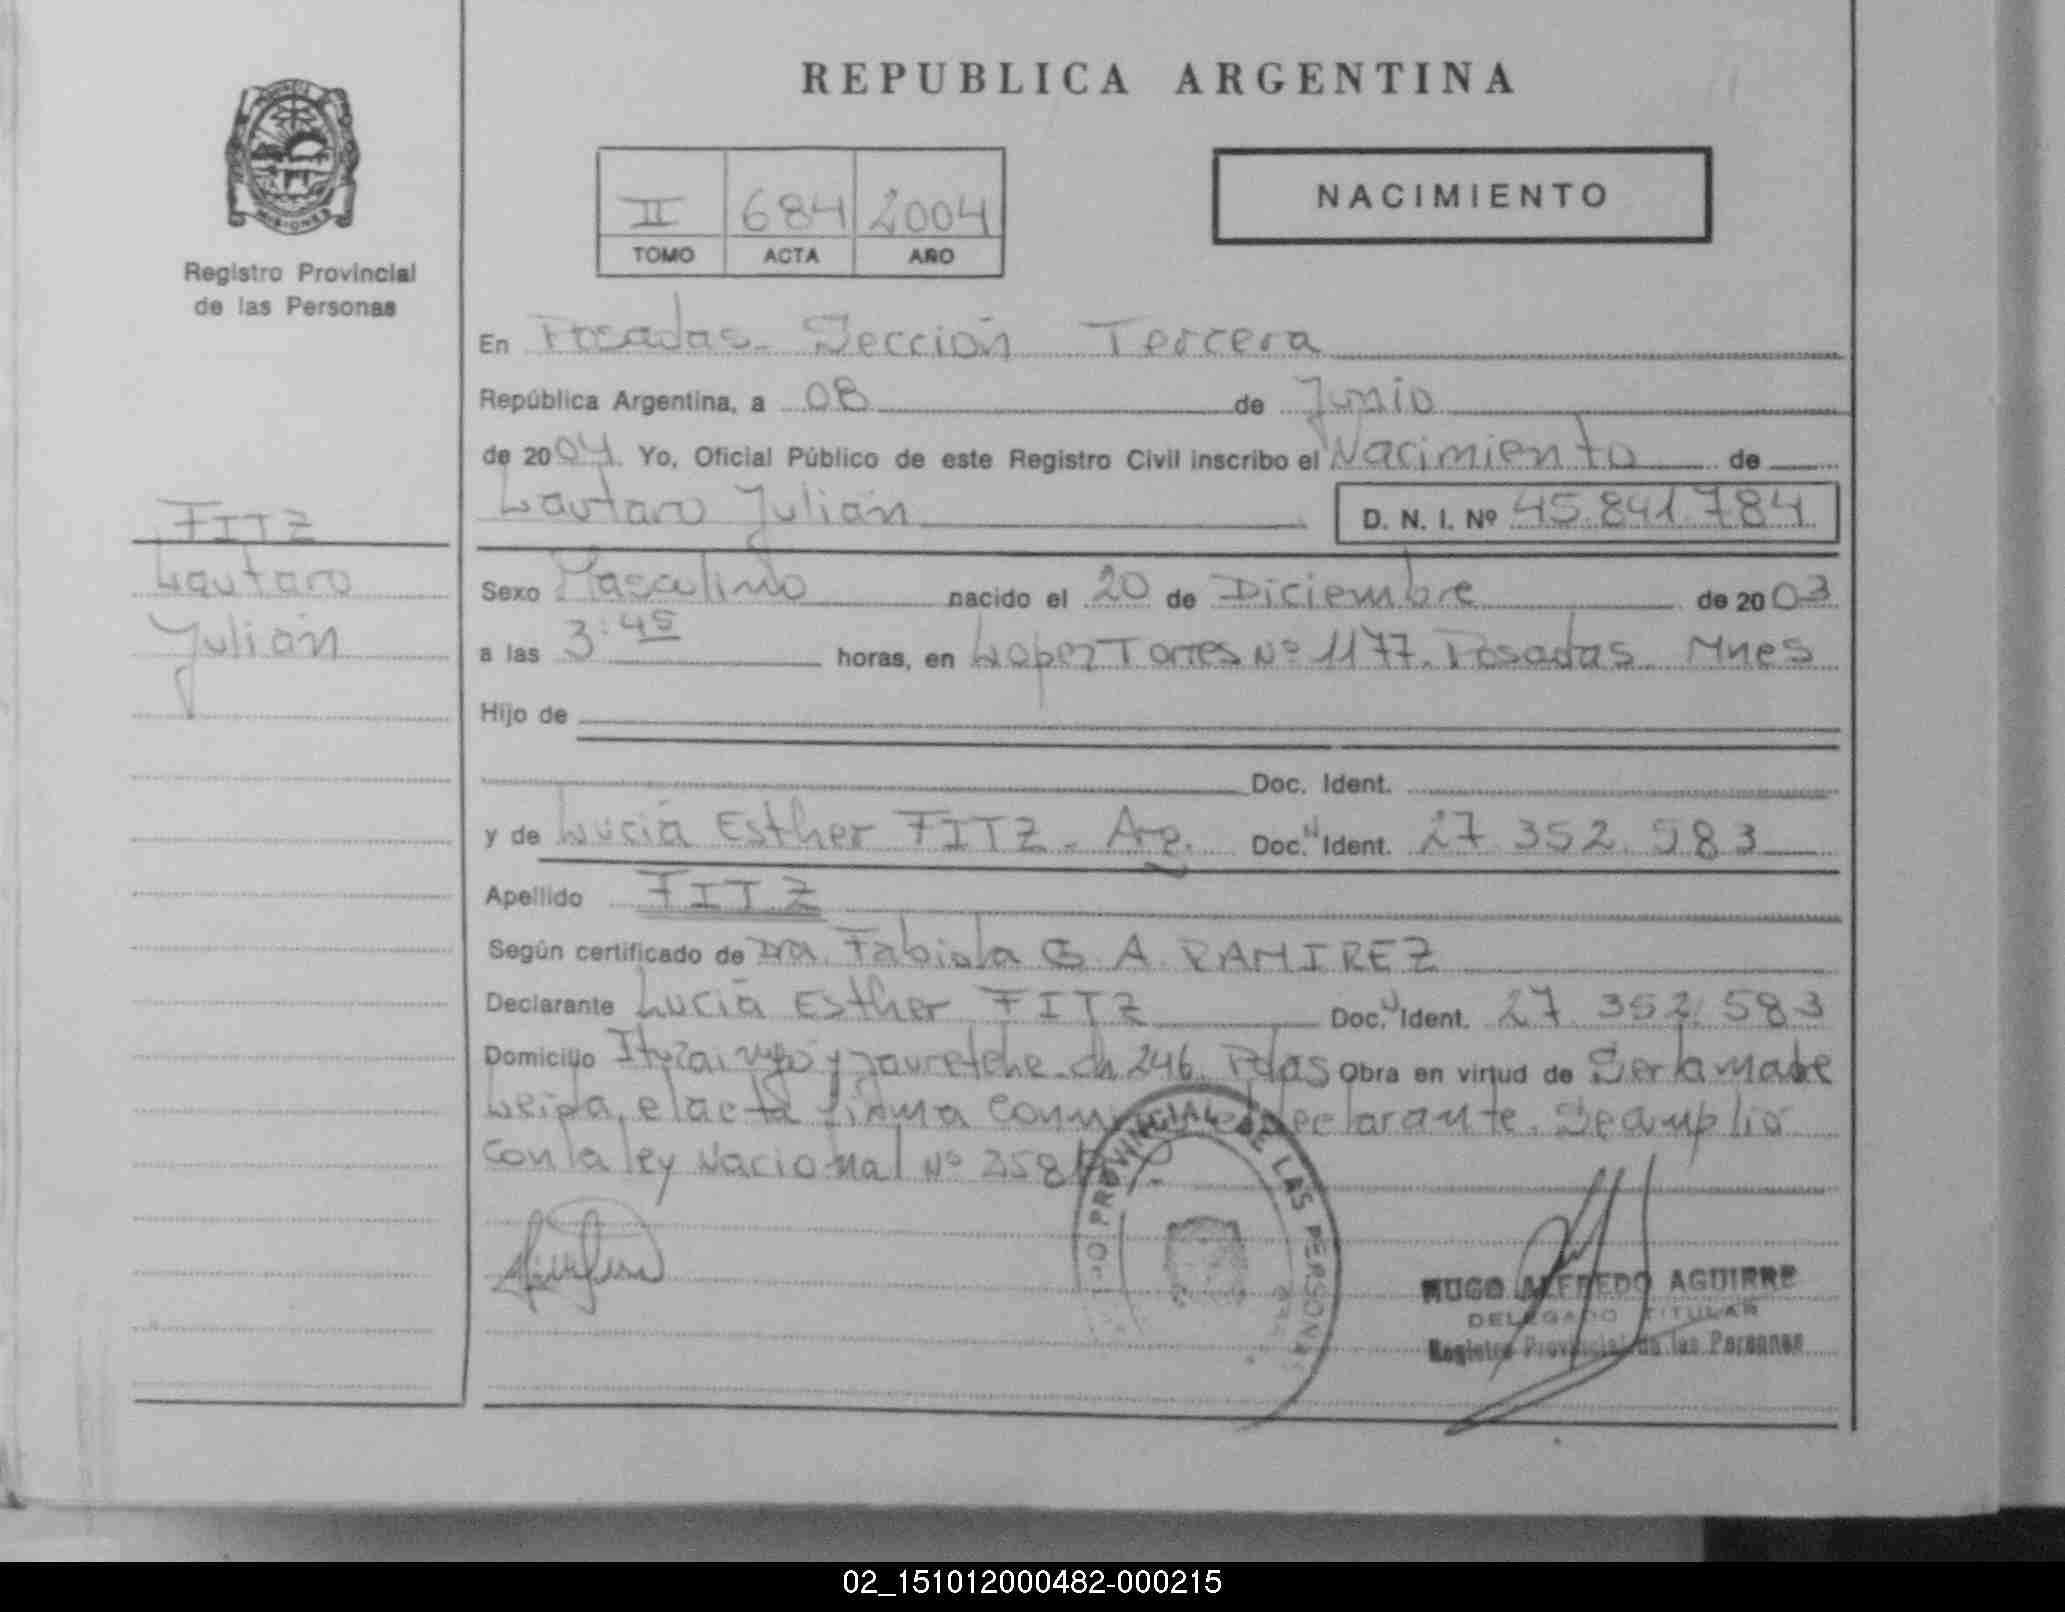 REPUBLICA ARGENTINA
MISIONES
Registro Provincial
de las Personas
II 684 2004
TOMO ACTA AÑO
NACIMIENTO
En Posadas - Sección Tercera
República Argentina, a 08 de Junio
de 2004. Yo, Oficial Público de este Registro Civil inscribo el Nacimiento de
Lautaro Julián D. N. I. Nº 45.841.784
FITZ
Lautaro
Julián
Sexo Masculino nacido el 20 de Diciembre de 2003
a las 3:45 horas, en Lopez Torres Nº 1177. Posadas. Mnes
Hijo de
Doc. Ident.
y de Lucia Esther FITZ - Arg. Doc. Ident. 27.352.583
Apellido FITZ
Según certificado de Dra. Fabiola G. A. RAMIREZ
Declarante Lucia Esther FITZ Doc. Ident. 27.352.583
Domicilio Ituzaingo y Jauretche - ch 246. Pdas Obra en virtud de Ser la madre
Leida, el acta firma conmigo el declarante. Se amplio
con la ley Nacional Nº
PROVINCIAL DE LAS PERSONAS
HUGO ALFREDO AGUIRRE
DELEGADO TITULAR
Registro Provincial de las Personas
02_151012000482-000215